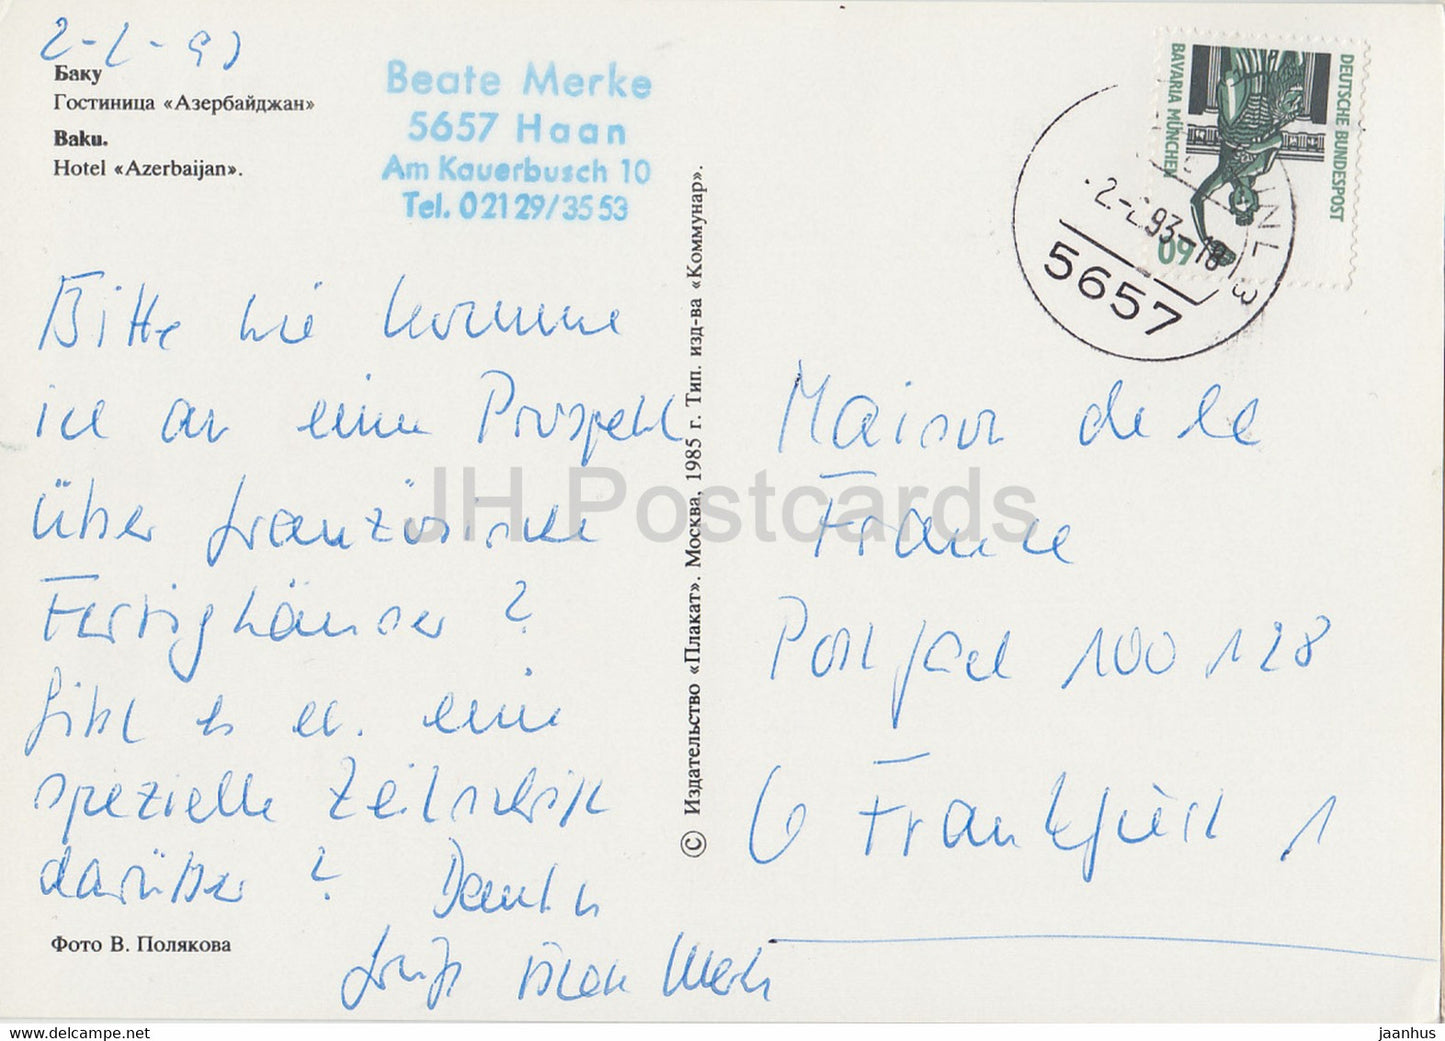 2-2-93
Баку
Гостиница «Азербайджан»
Baku.
Hotel «Azerbaijan».
Beate Merke
5657 Haan
Am Kauerbusch 10
Tel. 02129/3553
Bitte wie komme
ich an einen Prospekt
über französische
Fertighäuser ?
Gibt es ev. eine
spezielle Zeitschrift
darüber ? Danke
Фото В. Полякова
© Издательство «Плакат». Москва, 1985 г. Тип. изд-ва «Коммунар».
DEUTSCHE BUNDESPOST
BAVARIA MÜNCHEN
60
2.-2.93-18
5657
Maison de la
France
Postfach 100 128
6 Frankfurt 1
JH Postcards
www.delcampe.net
jaanhus